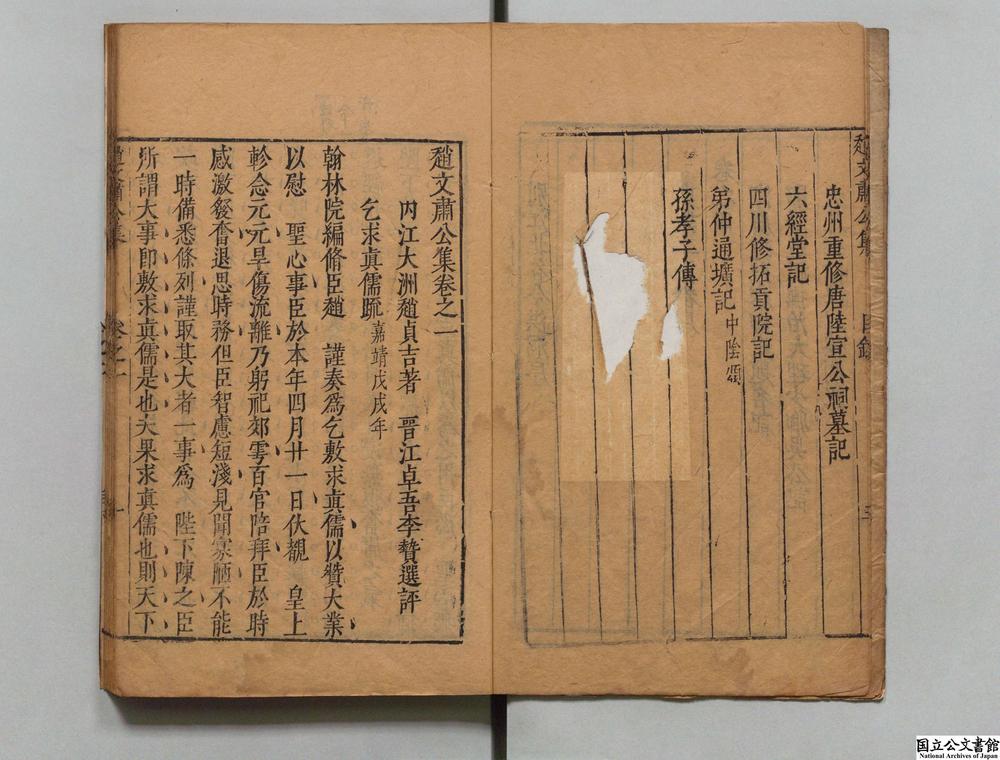 趙文肅公集 目錄 三
忠州重修唐陸宣公祠墓記
六經堂記
四川修拓貢院記
弟仲通壙記中陰頌
孫孝子傳
趙文肅公集卷之一
内江大洲趙貞吉著 晋江卓吾李贄選評
乞求真儒疏嘉靖戊戌年
翰林院編脩臣趙 謹奏為乞敷求真儒以贊大業
以慰 聖心事臣於本年四月廿一日伏覩 皇上
軫念元元旱傷流離乃躬祀郊雩百官陪拜臣於時
感激發奮退思時務但臣智慮短淺見聞寡陋不能
一時備悉條列謹取其大者一事為 陛下陳之臣
所謂大事即敷求真儒是也夫果求真儒也則天下
趙文肅公集 卷之一 一
国立公文書館
National Archives of Japan